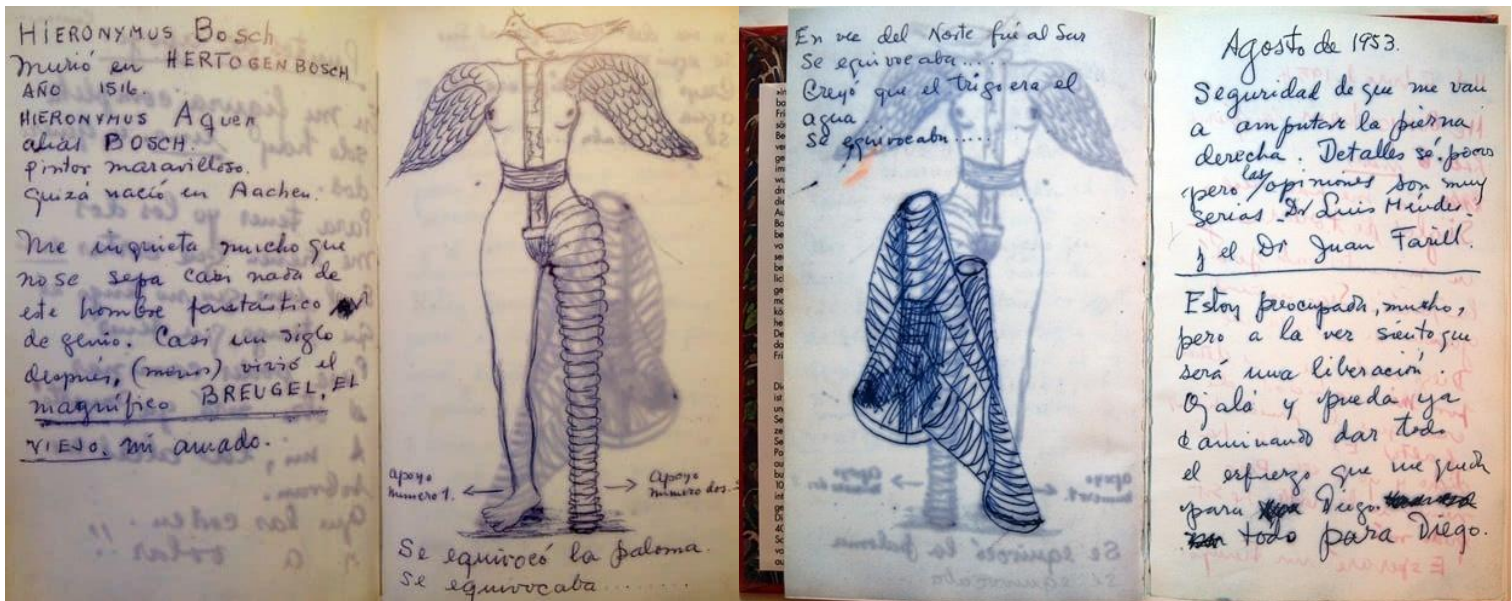 HIERONYMUS Bosch
murió en HERTOGENBOSCH
AÑO 1516.
HIERONYMUS Aquen
alias BOSCH.
pintor maravilloso.
quizá nació en Aachen.
Me inquieta mucho que
no se sepa casi nada de
este hombre fantástico
de genio. Casi un siglo
después, (menos) vivió el
magnífico BREUGEL, EL
VIEJO, mi amado.
apoyo
numero 1.
apoyo
numero dos.
Se equivocó la paloma.
Se equivocaba........
En vez del Norte fué al Sur
Se equivocaba.....
Creyó que el trigo era el
agua
Se equivocaba.....
Agosto de 1953.
Seguridad de que me van
a amputar la pierna
derecha. Detalles sé pocos
pero las opiniones son muy
serias. Dr Luis Méndez
y el Dr Juan Farill.
Estoy preocupada, mucho,
pero a la vez siento que
será una liberación.
Ojalá y pueda ya
caminando dar todo
el esfuerzo que me queda
para Diego.
todo para Diego.